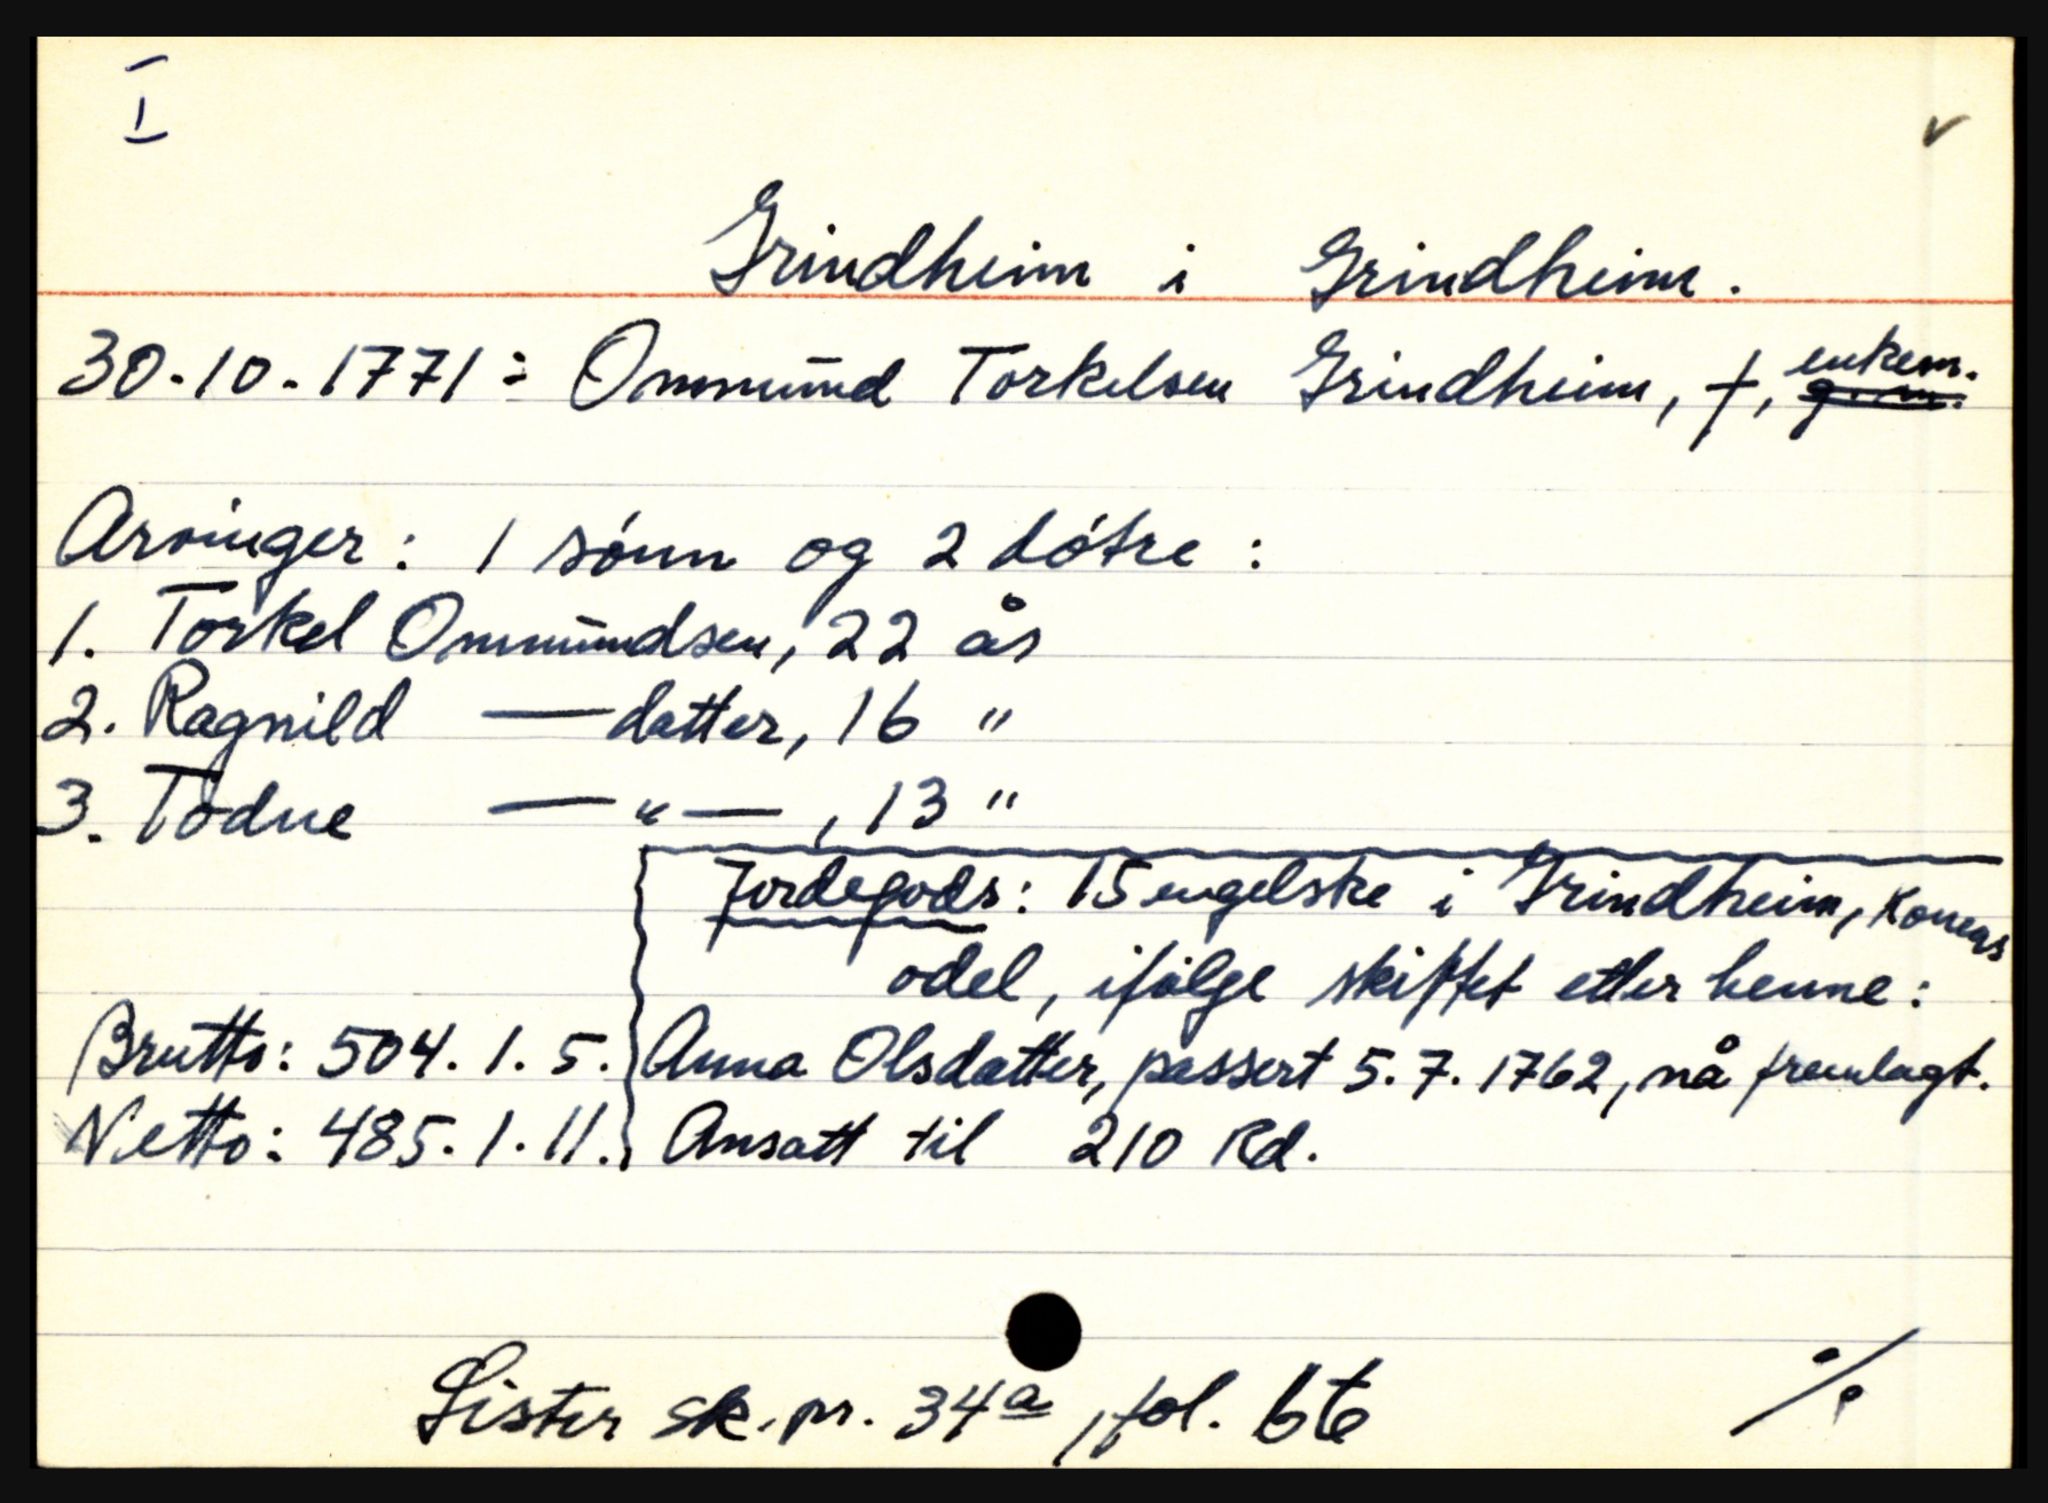 I
Grindheim i Grindheim.
30.10.1771: Ommund Torkelsen Grindheim, †, enkem. g.m.
Arvinger: 1 sønn og 2 døtre:
1. Torkel Ommundsen, 22 år
2. Ragnild — datter, 16 "
3. Todne — " — , 13 "
Jordegods: 15 engelske i Grindheim, konens
odel, ifølge skiftet etter henne:
Brutto: 504. 1. 5. Anna Olsdatter, passert 5.7.1762, nå fremlagt.
Netto: 485. 1. 11. Ansatt til 210 Rd.
Lister sk. pr. 34a, fol.